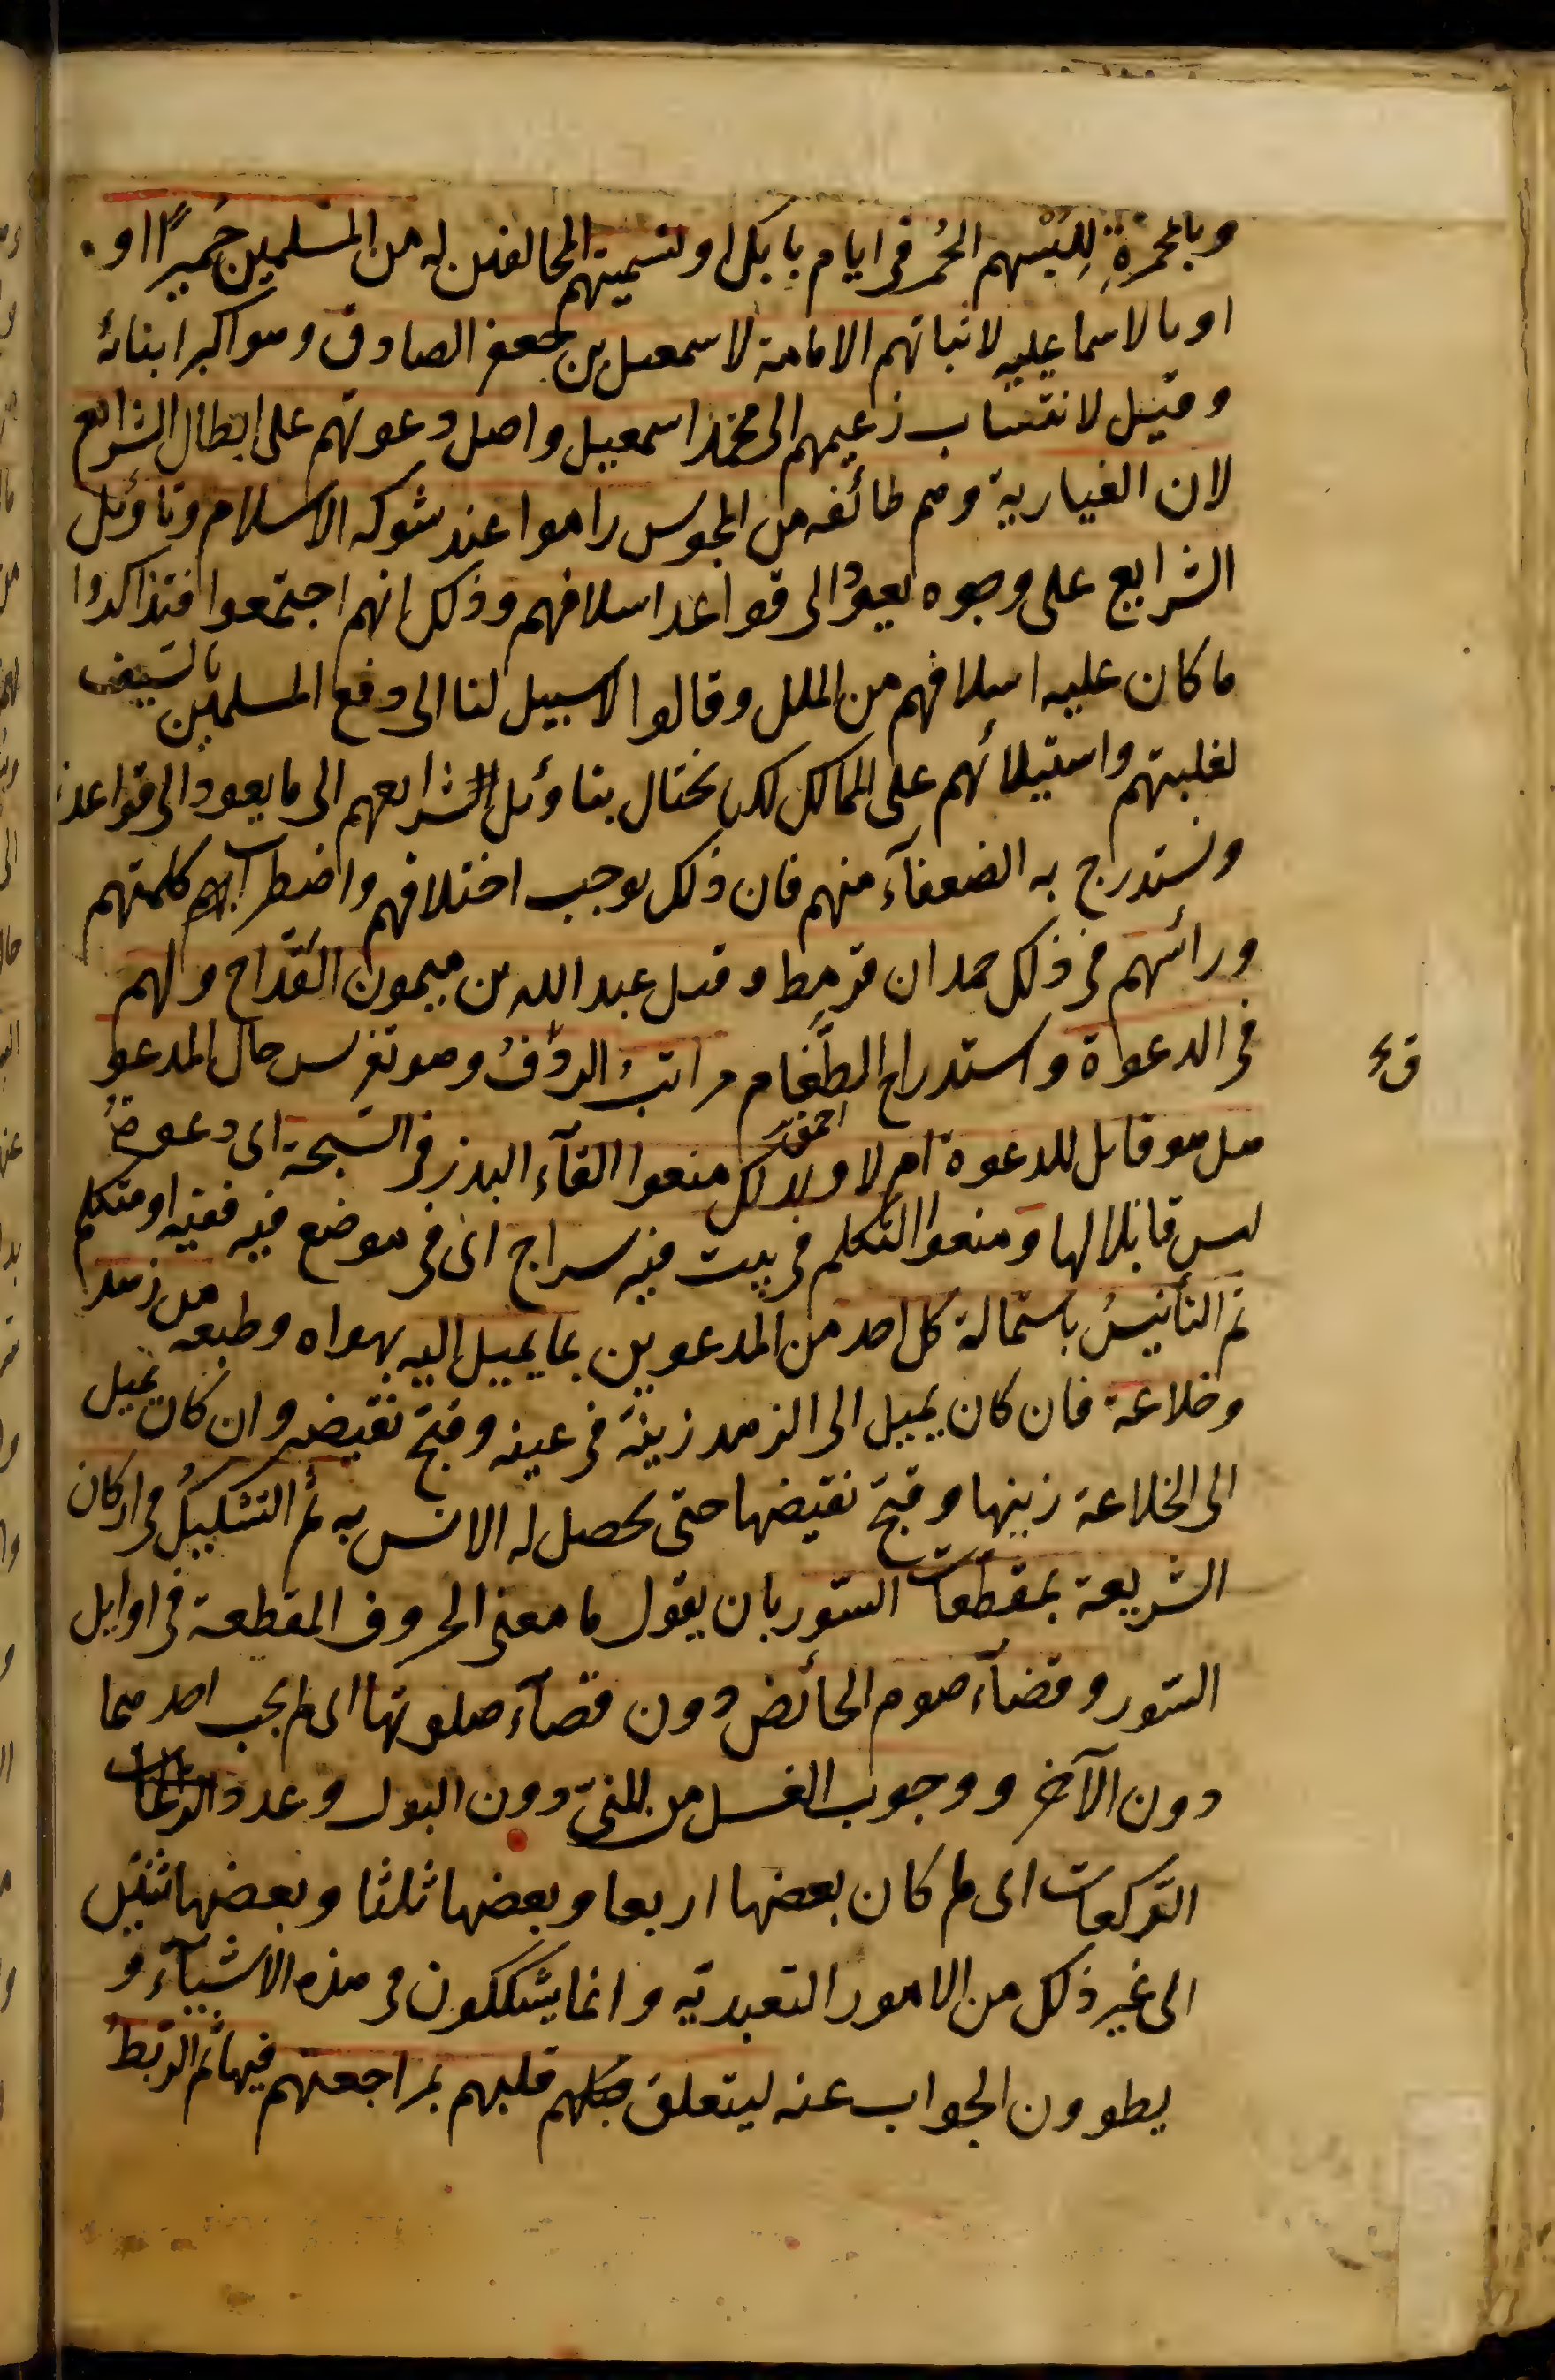 وبالمحمرة للبسهم الحمر في ايام بابك او لتسميتهم المخالفين له من المسلمين حميرا او
او بالاسماعيلية لاثباتهم الامامة لاسمعيل بن جعفر الصادق وهو اكبر ابنائه
وقيل لانتساب زعيمهم الى محمد اسمعيل واصل دعوتهم على ابطال الشرايع
لان الغيارية وهم طائفه من المجوس راموا عند شوكه الاسلام وتاؤيل
الشرايع على وجوه يعود الى قواعد اسلافهم وذلك انهم اجتمعوا فتذاكروا
ما كان عليه اسلافهم من الملك وقالوا لا سبيل لنا الى دفع المسلمين بالسيف
لغلبتهم واستيلائهم على الممالك لكن نحتال بتاؤيل شرايعهم الى ما يعود الى قواعدنا
ونستدرج به الضعفآء منهم فان ذلك يوجب اختلافهم واضطراب كلمتهم
ورأسهم في ذلك حمدان قرمط وقيل عبد الله بن ميمون القداح ولهم
في الدعوة واستدراج الطغام مراتب الذوق وهو تفرس حال المدعو
هل هو قابل للدعوة ام لا ولذلك منعوا القآء البذر في السبخة اى دعوة من
ليس قابلا لها ومنعوا التكلم في بيت فيه سراج اى في موضع فيه فقيه او متكلم
ثم التأنيس باستمالة كل احد من المدعوين بما يميل اليه بهواه وطبعه من زهد
وخلاعة فان كان يميل الى الزهد زينه في عينه وقبح نقيضه وان كان يميل
الى الخلاعة زينها وقبح نقيضها حتى يحصل له الانس به ثم التشكيك في اركان
الشريعة بمقطعات السور بان يقول ما معنى الحروف المقطعة في اوايل
السور وقضآء صوم الحائض دون قضآء صلوتها اى لم يجب احدهما
دون الآخر ووجوب الغسل من المنى دون البول وعدد
الركعات اى لم كان بعضها اربعا وبعضها ثلثا وبعضها ثنتين
الى غير ذلك من الامور التعبدية وانما يشككون في هذه الاشيآء و
يطوون الجواب عنه ليتعلق قلبهم بمراجعتهم فيها ثم الربط